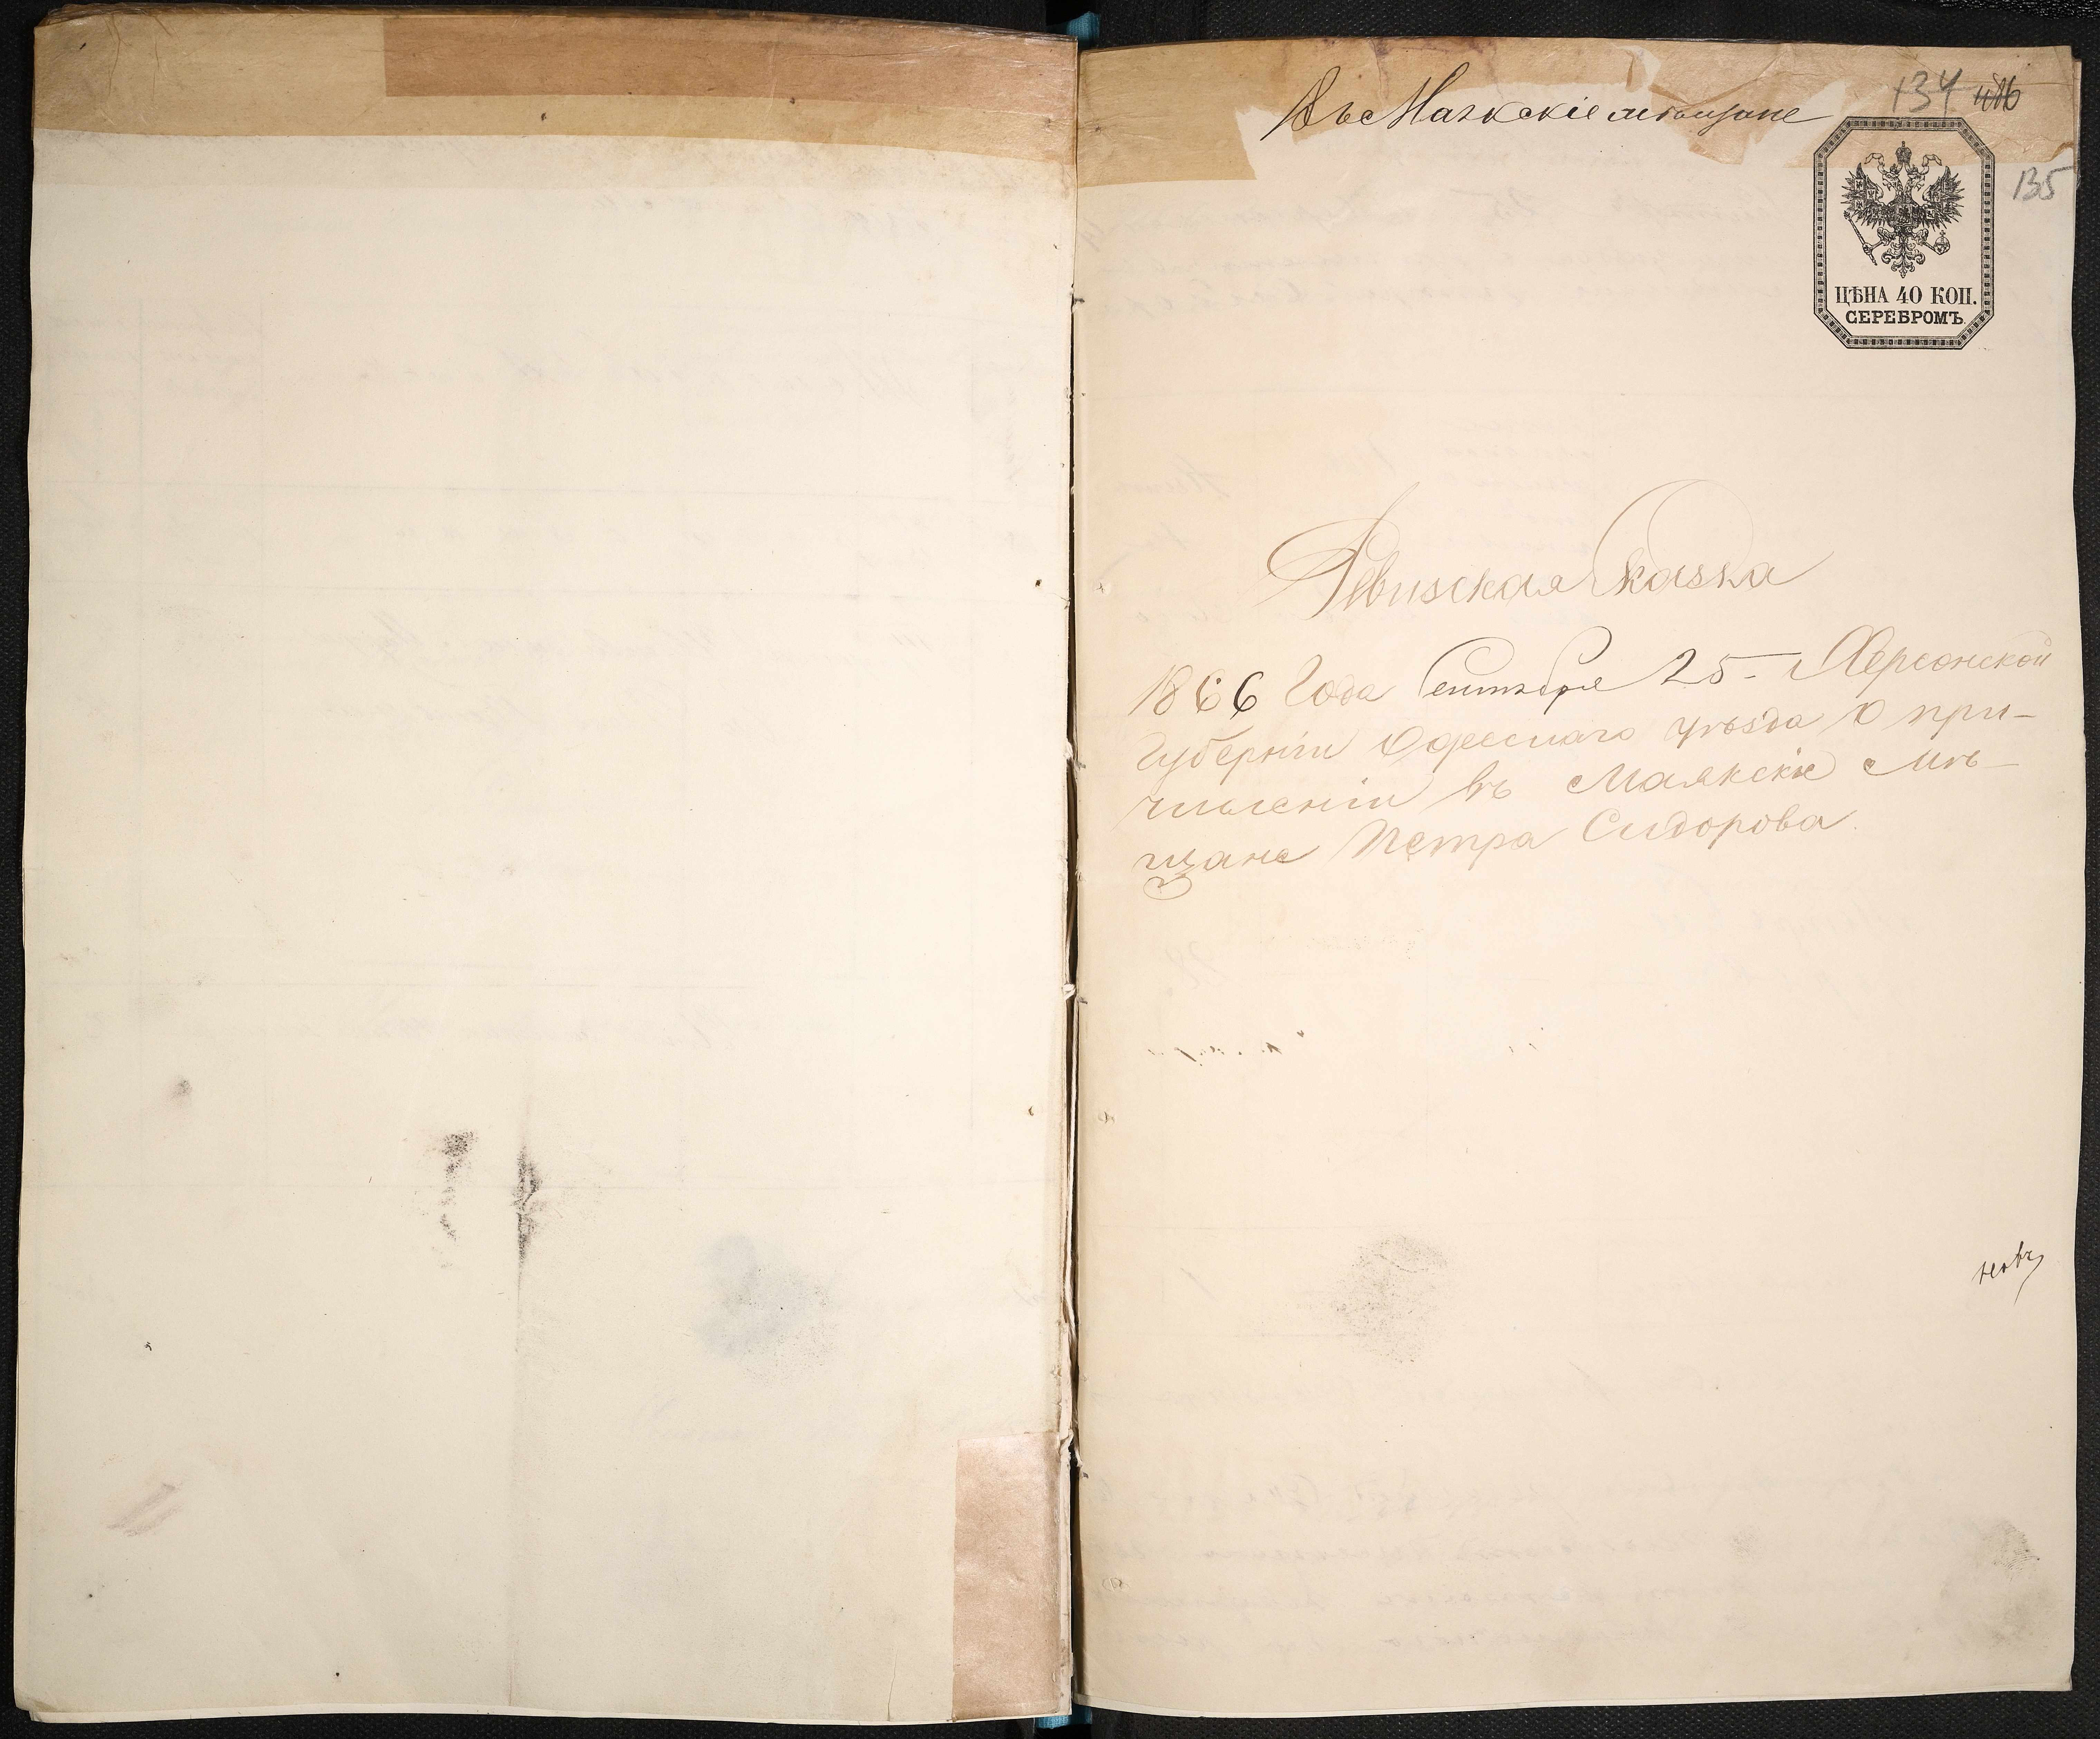 Въ Маякскіе мѣщане
134
135
ЦѢНА 40 КОП.
СЕРЕБРОМЪ
Ревизская Сказка
1866 Года Сентября 25 - Херсонской
Губерніи Одесскаго уѣзда О при-
численіи въ Маякскіе мѣ-
щане Петра Сидорова